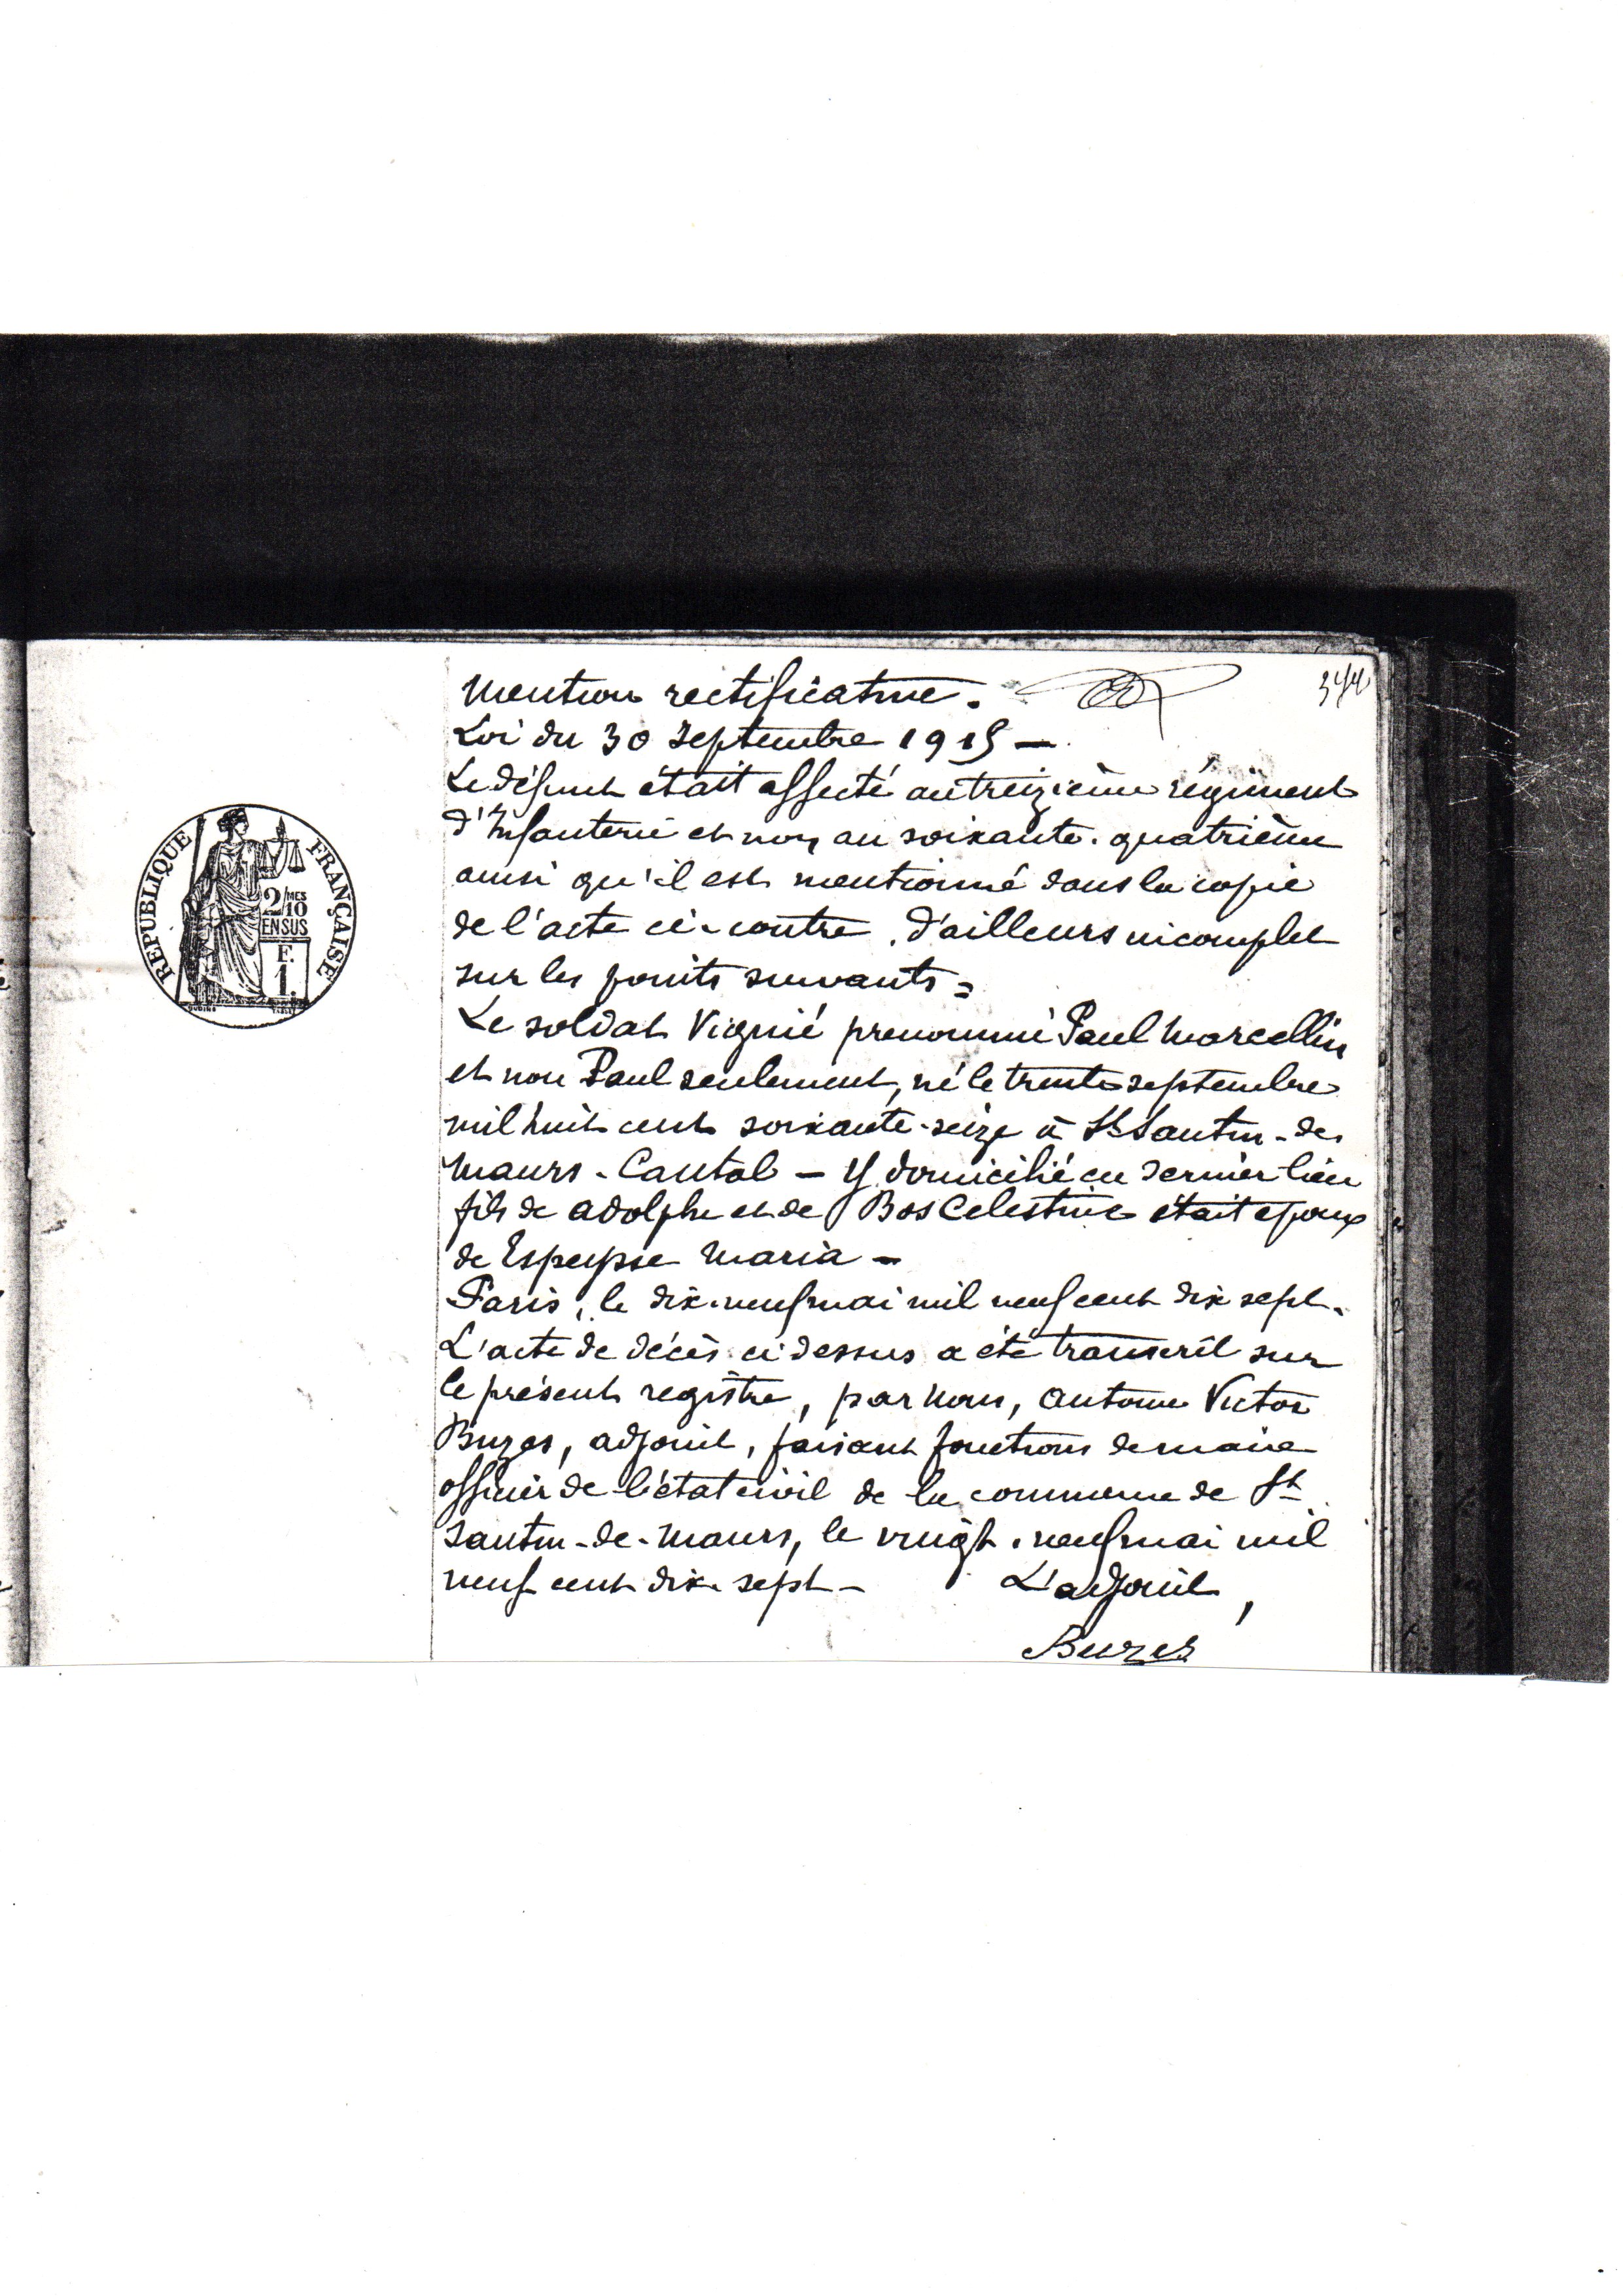 344
Mention rectificative.
Loi du 30 Septembre 1915 —
Le défunt était affecté au treizième régiment
d'Infanterie et non au soixante. quatrième
ainsi qu'il est mentionné dans la copie
de l'acte ci-contre. d'ailleurs incomplet
sur les points suivants =
Le soldat Vignié prenommé Paul Marcellin
et non Paul seulement, né le trente septembre
mil huit cent soixante-seize à St Santin-de
Maurs-Cantal — y domicilié en dernier lieu
fils de Adolphe et de Bos Celestine était époux
de Espeysse Maria —
Paris, le dix-neuf mai mil neuf cent dix sept.
L'acte de décès ci dessus a été transcrit sur
le présent registre, par nous, Antoine Victor
Buzes, adjoint, faisant fonctions de maire
officier de l'état civil de la commune de St
Santin-de-Maurs, le vingt-neuf mai mil
neuf cent dix-sept — L'adjoint,
Buzes
RÉPUBLIQUE FRANÇAISE
2/10 MES
EN SUS
F.
1.